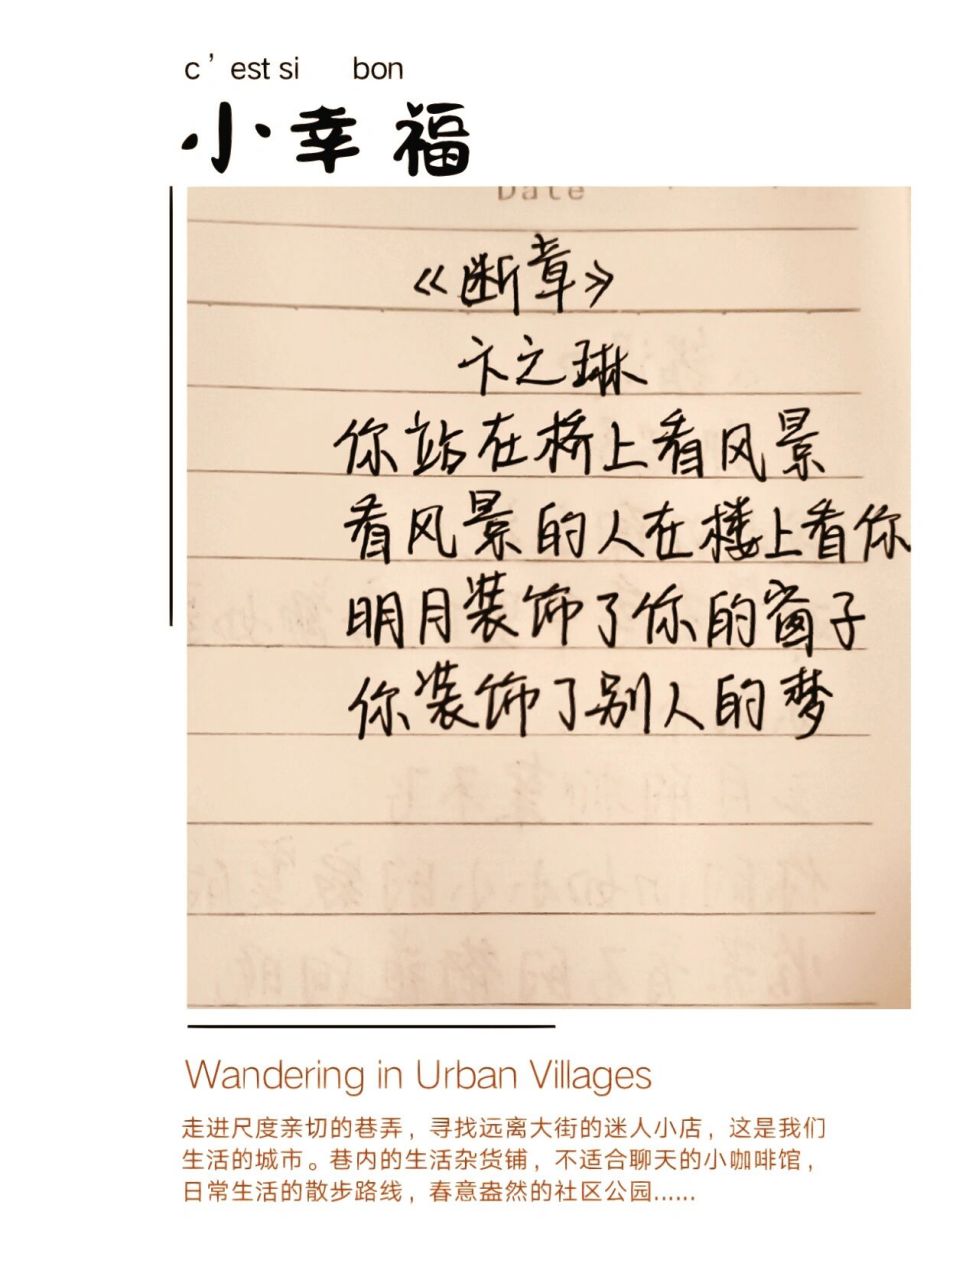 c’est si bon
小幸福
Date
《断章》
卞之琳
你站在桥上看风景
看风景的人在楼上看你
明月装饰了你的窗子
你装饰了别人的梦
Wandering in Urban Villages
走进尺度亲切的巷弄，寻找远离大街的迷人小店，这是我们
生活的城市。巷内的生活杂货铺，不适合聊天的小咖啡馆，
日常生活的散步路线，春意盎然的社区公园......